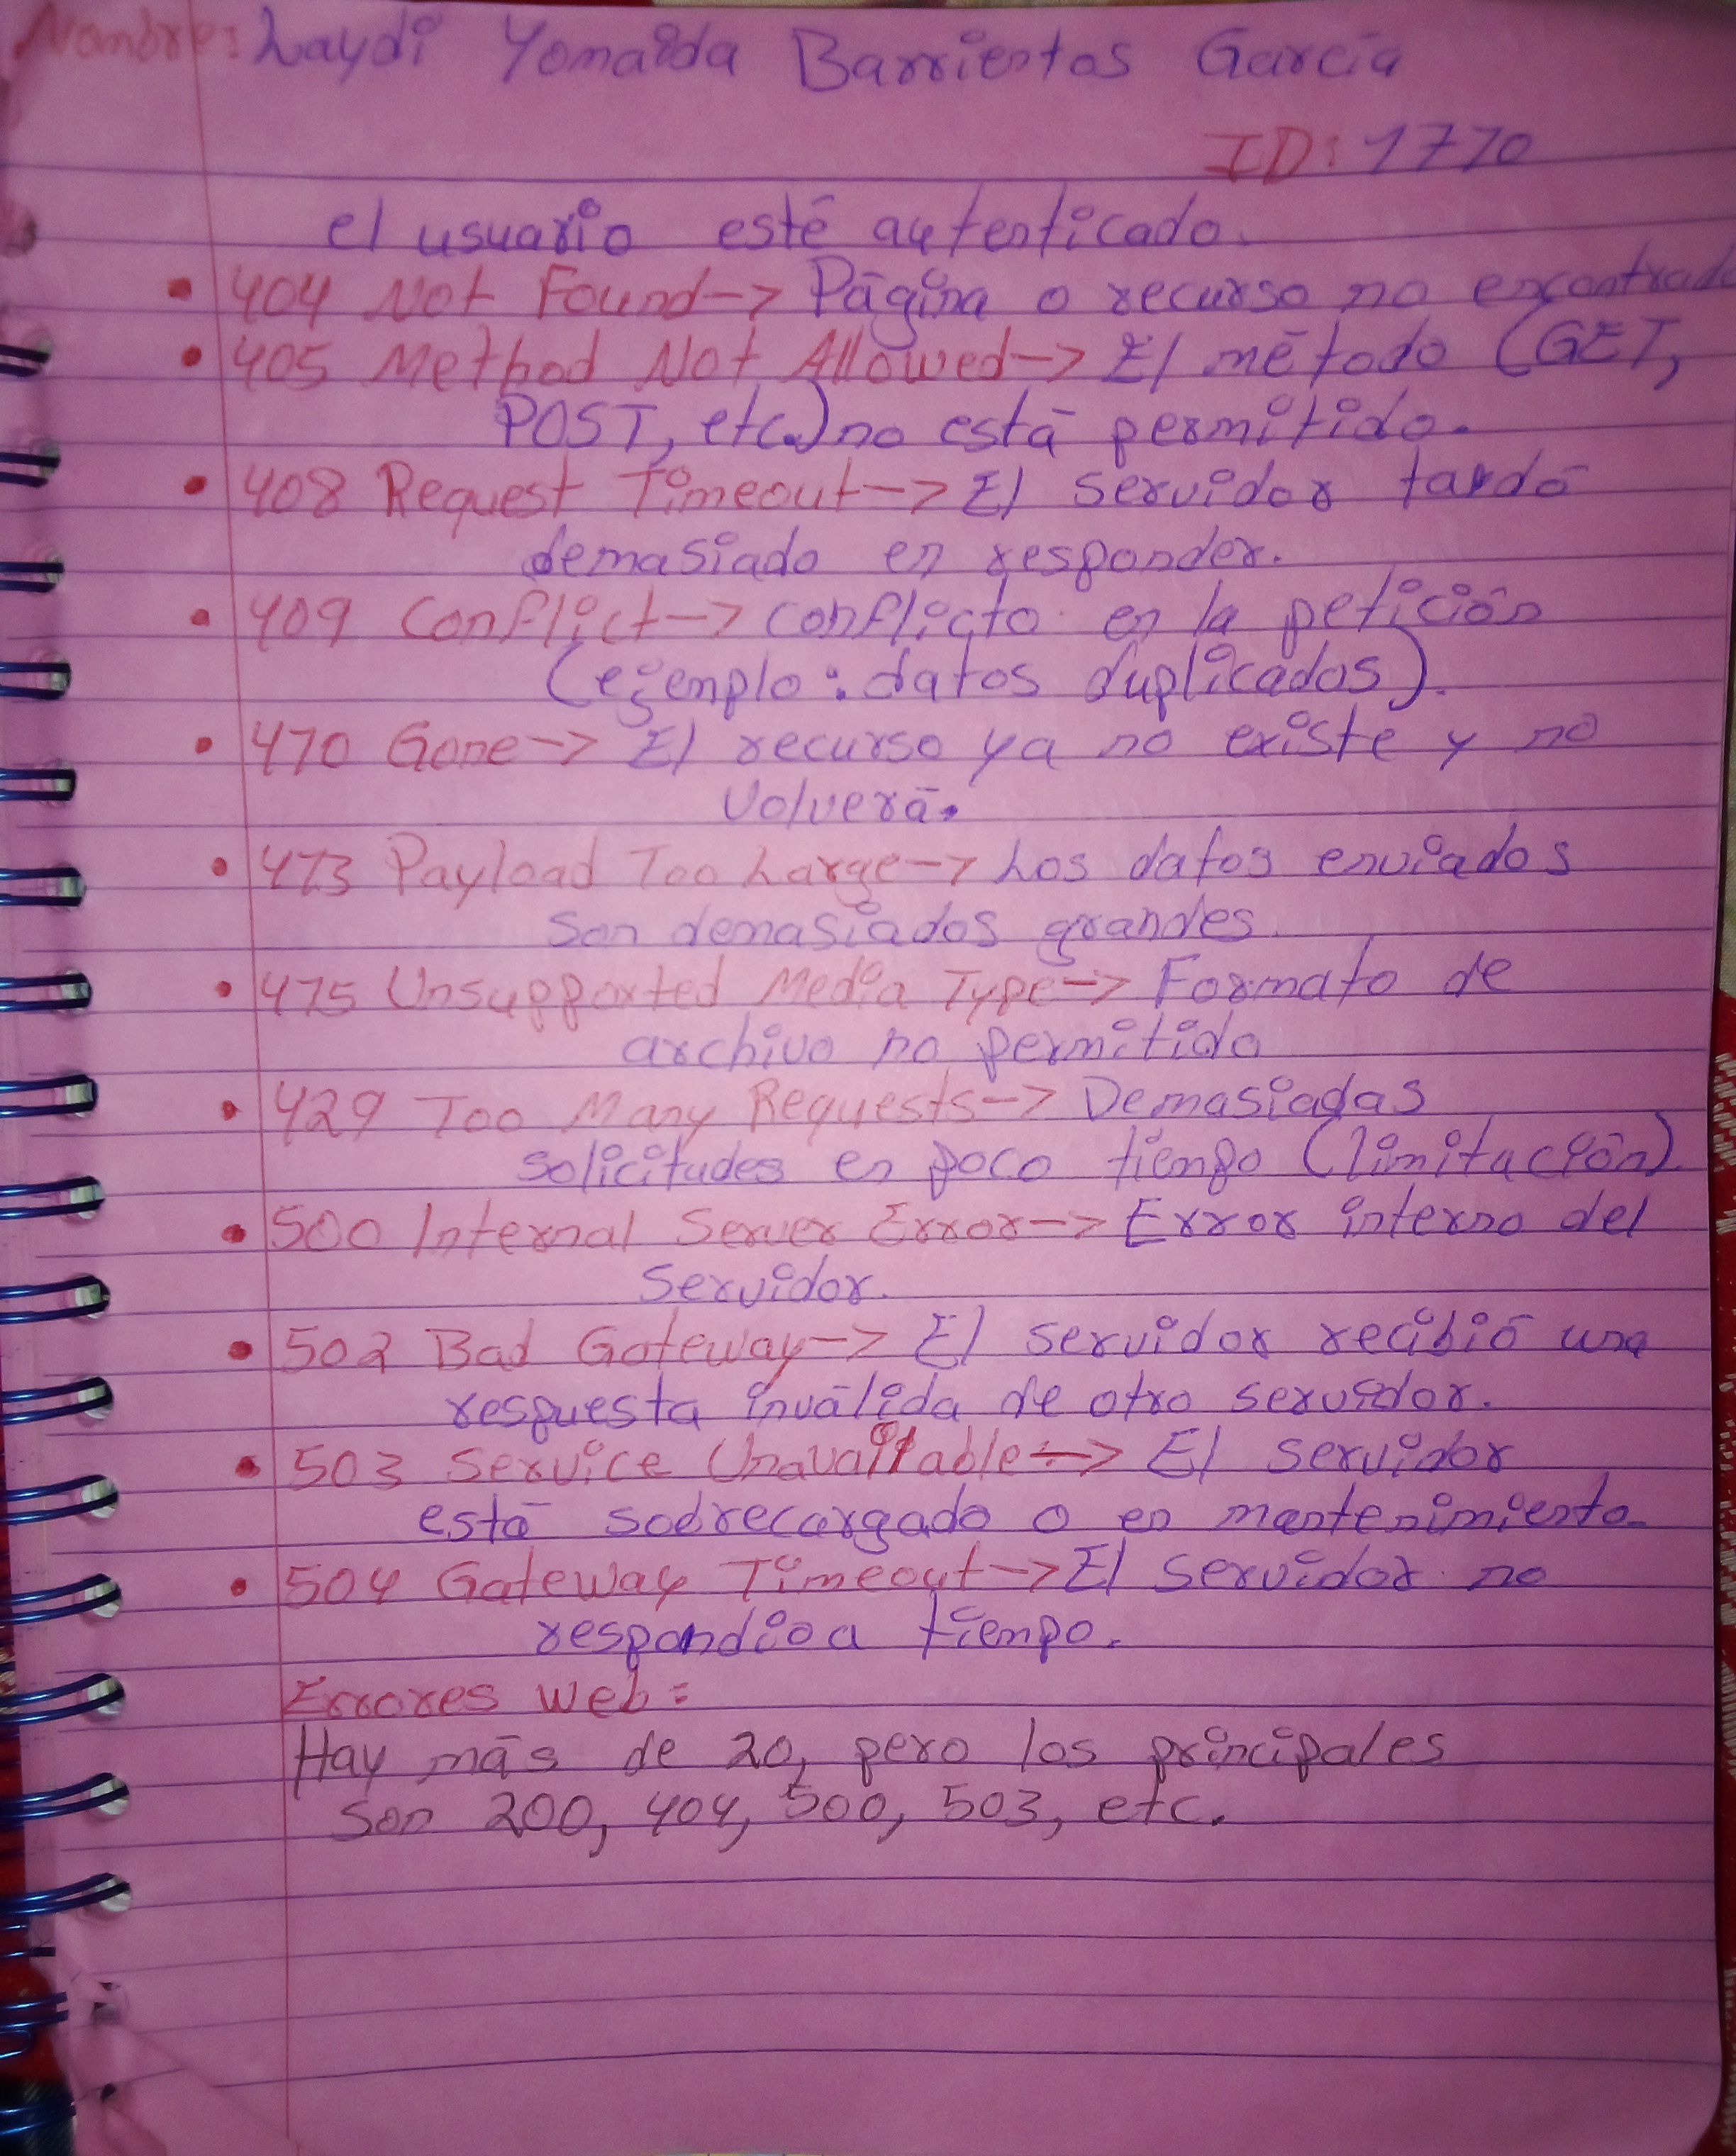 Nombre: Laydi Yomaida Barrientos García
ID: 1770
el usuario esté autenticado.
• 404 Not Found -> Página o recurso no encontrado
• 405 Method Not Allowed -> El método (GET,
POST, etc.) no está permitido.
• 408 Request Timeout -> El servidor tardó
demasiado en responder.
• 409 Conflict -> conflicto en la petición
(ejemplo: datos duplicados).
• 410 Gone -> El recurso ya no existe y no
volverá.
• 413 Payload Too Large -> Los datos enviados
son demasiados grandes.
• 415 Unsupported Media Type -> Formato de
archivo no permitido
• 429 Too Many Requests -> Demasiadas
solicitudes en poco tiempo (limitación)
• 500 Internal Server Error -> Error interno del
servidor.
• 502 Bad Gateway -> El servidor recibió una
respuesta inválida de otro servidor.
• 503 Service Unavailable -> El servidor
está sobrecargado o en mantenimiento.
• 504 Gateway Timeout -> El servidor no
respondio a tiempo.
Errores web:
Hay más de 20, pero los principales
son 200, 404, 500, 503, etc.